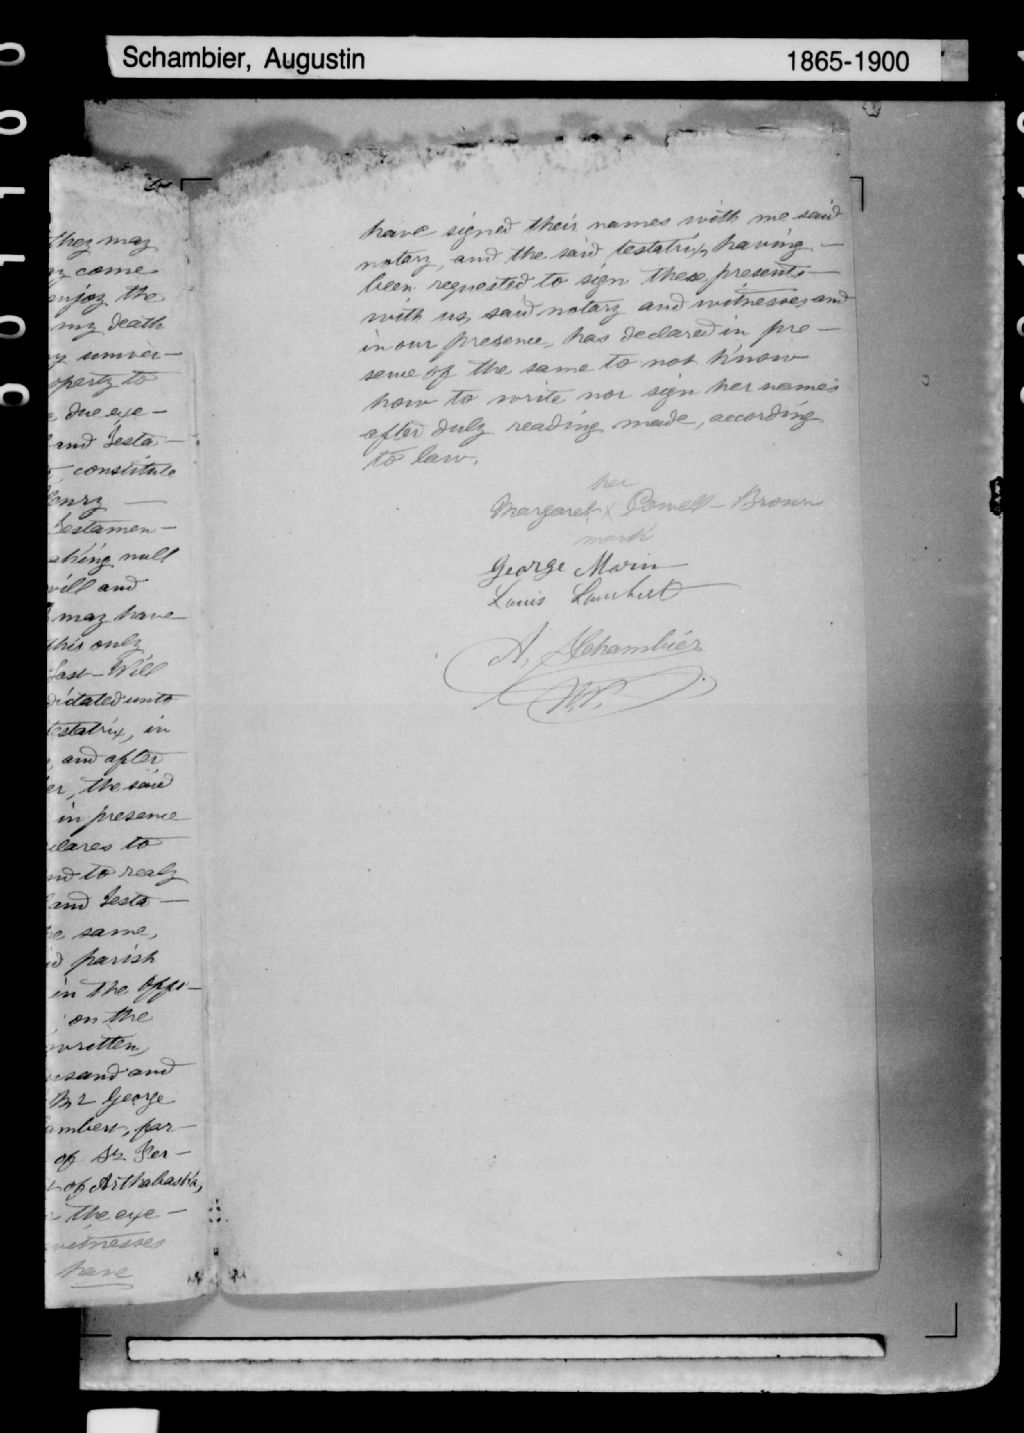 Schambier, Augustin
1865-1900
they may
come
enjoy the
my death
univer-
operty to
due exe-
and Testa-
constitute
enry
Testamen-
aking null
will and
may have
this only
Last-Will
dictated unto
testatrix, in
and after
er, the said
in presence
clares to
and to realy
and Testa-
same,
parish
in the Opps-
on the
written,
usand and
Mr George
ambert, far-
of St. Fer-
of Arthabaska,
the exe-
witnesses
have
have signed their names with me said
notary, and the said testatrix, having-
been requested to sign these presents-
with us, said notary and witnesses, and
in our presence, has declared in pre-
sence of the same to not know
how to write nor sign her names
after duly reading made, according
to law.
her
Margaret X Powell-Brown
mark
George Morin
Louis Lambert
A. Schambier
N.P.